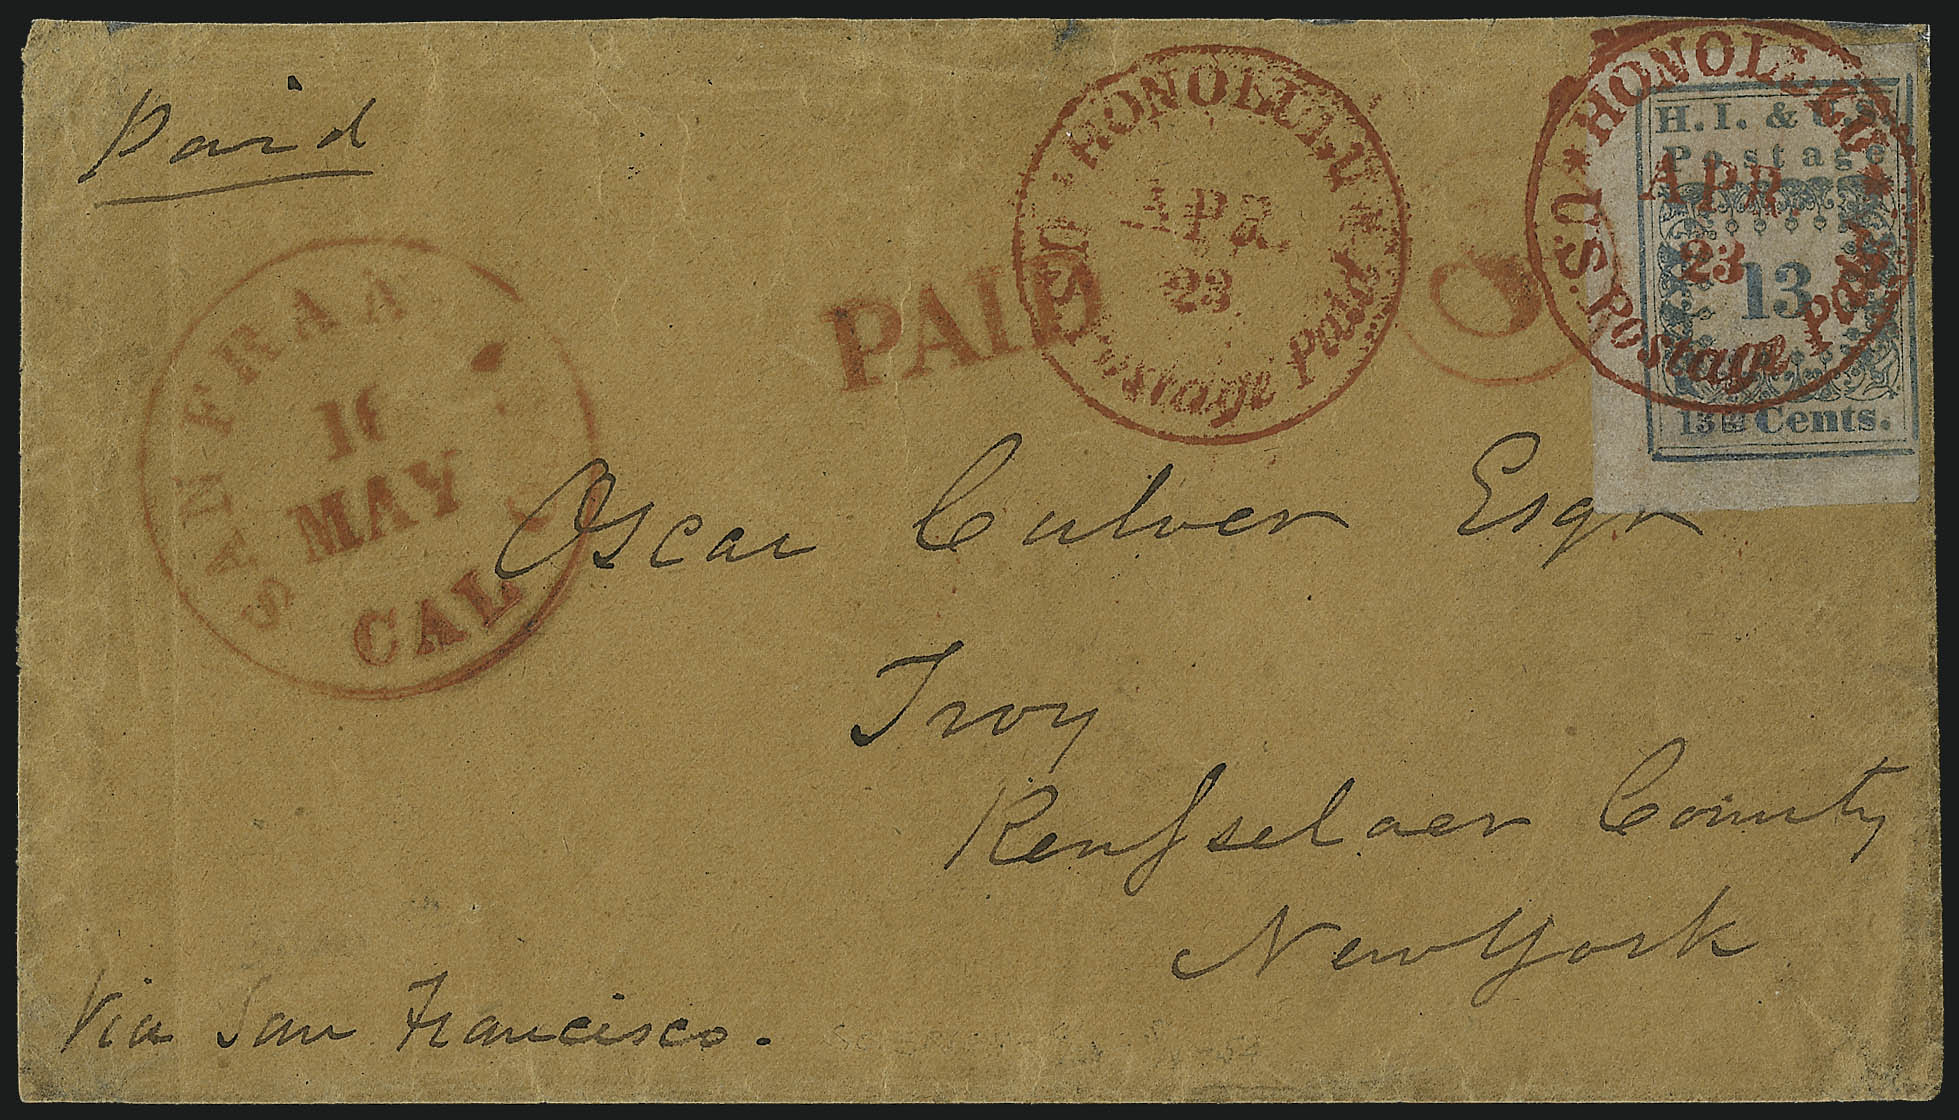 Paid
HONOLULU
APR
23
U.S. Postage Paid
HONOLULU
APR.
23
U.S. Postage Paid
H. I. & U.S.
Postage
13
Cents.
PAID
SAN FRAN
MAY
CAL
Oscar Culver Esqr
Troy
Renſselaer County
New York
Via San Francisco.